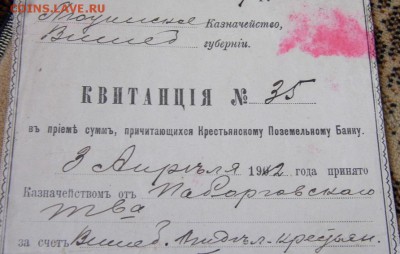 COINS.LAVE.RU
Казначейство,
Витеб губерніи.
КВИТАНЦІЯ № 35
въ пріемѣ суммъ, причитающихся Крестьянскому Поземельному Банку.
3 Апрѣля 1912 года принято
Казначействомъ отъ
тва
за счетъ Витеб. крестьян.